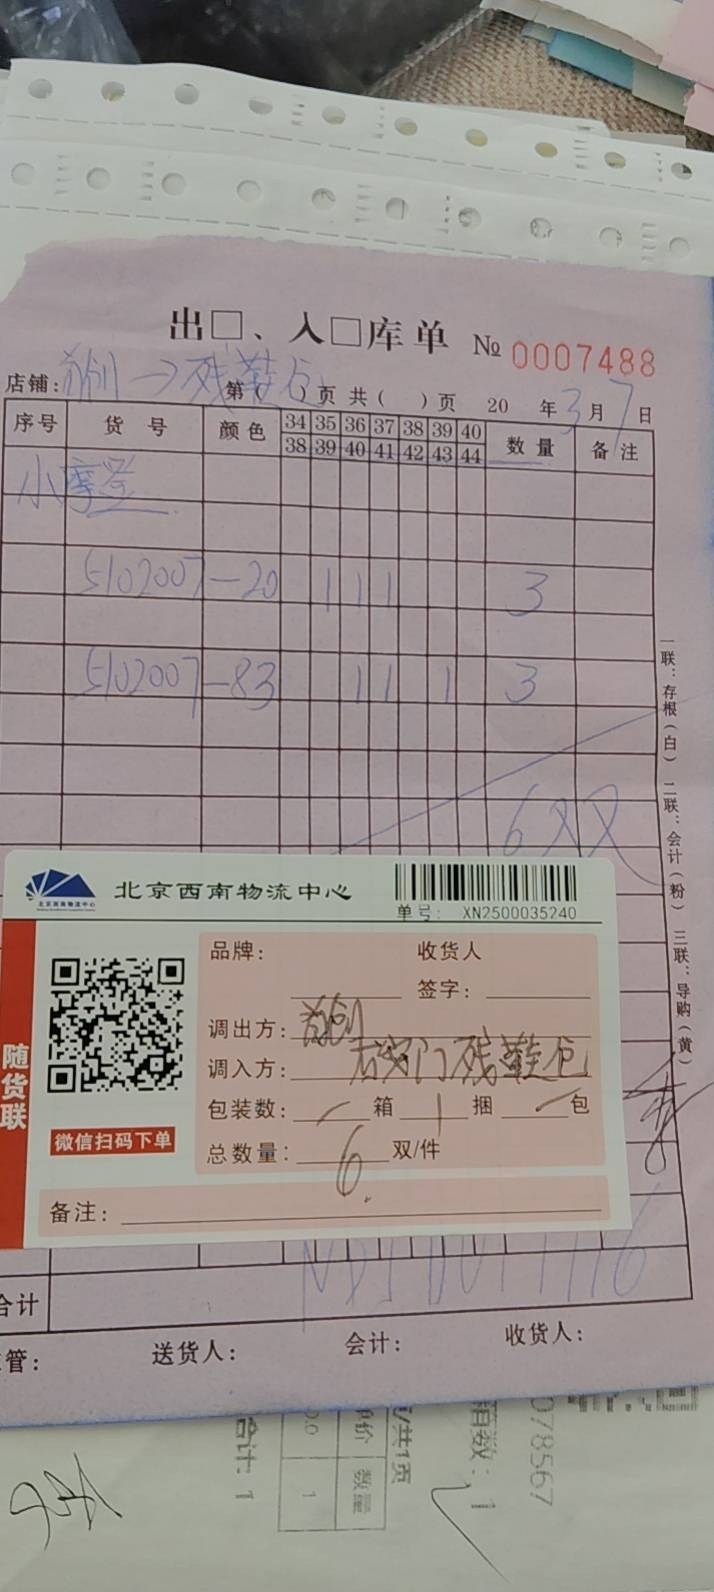 出□、入□库单 № 0007488
店铺: 首创→残鞋包 第( )页 共( )页 20 年3月7日
序号 货号 颜色 34 35 36 37 38 39 40 数量 备注
38 39 40 41 42 43 44
小摩登
5102007-20 1 1 1 3
5102007-83 1 1 1 3
6双
一联:存根(白) 二联:会计(粉) 三联:导购(黄)
北京西南物流中心
单号: XN2500035240
随货联
微信扫码下单
品牌: 收货人
签字:
调出方: 首创
调入方: 右安门残鞋包
包装数: 箱 1 捆 包
总数量: 6 双/件
备注:
合计
管: 送货人: 会计: 收货人:
合计: 1
0.0 单价
1 数量
/共1页
箱数: 1
078567